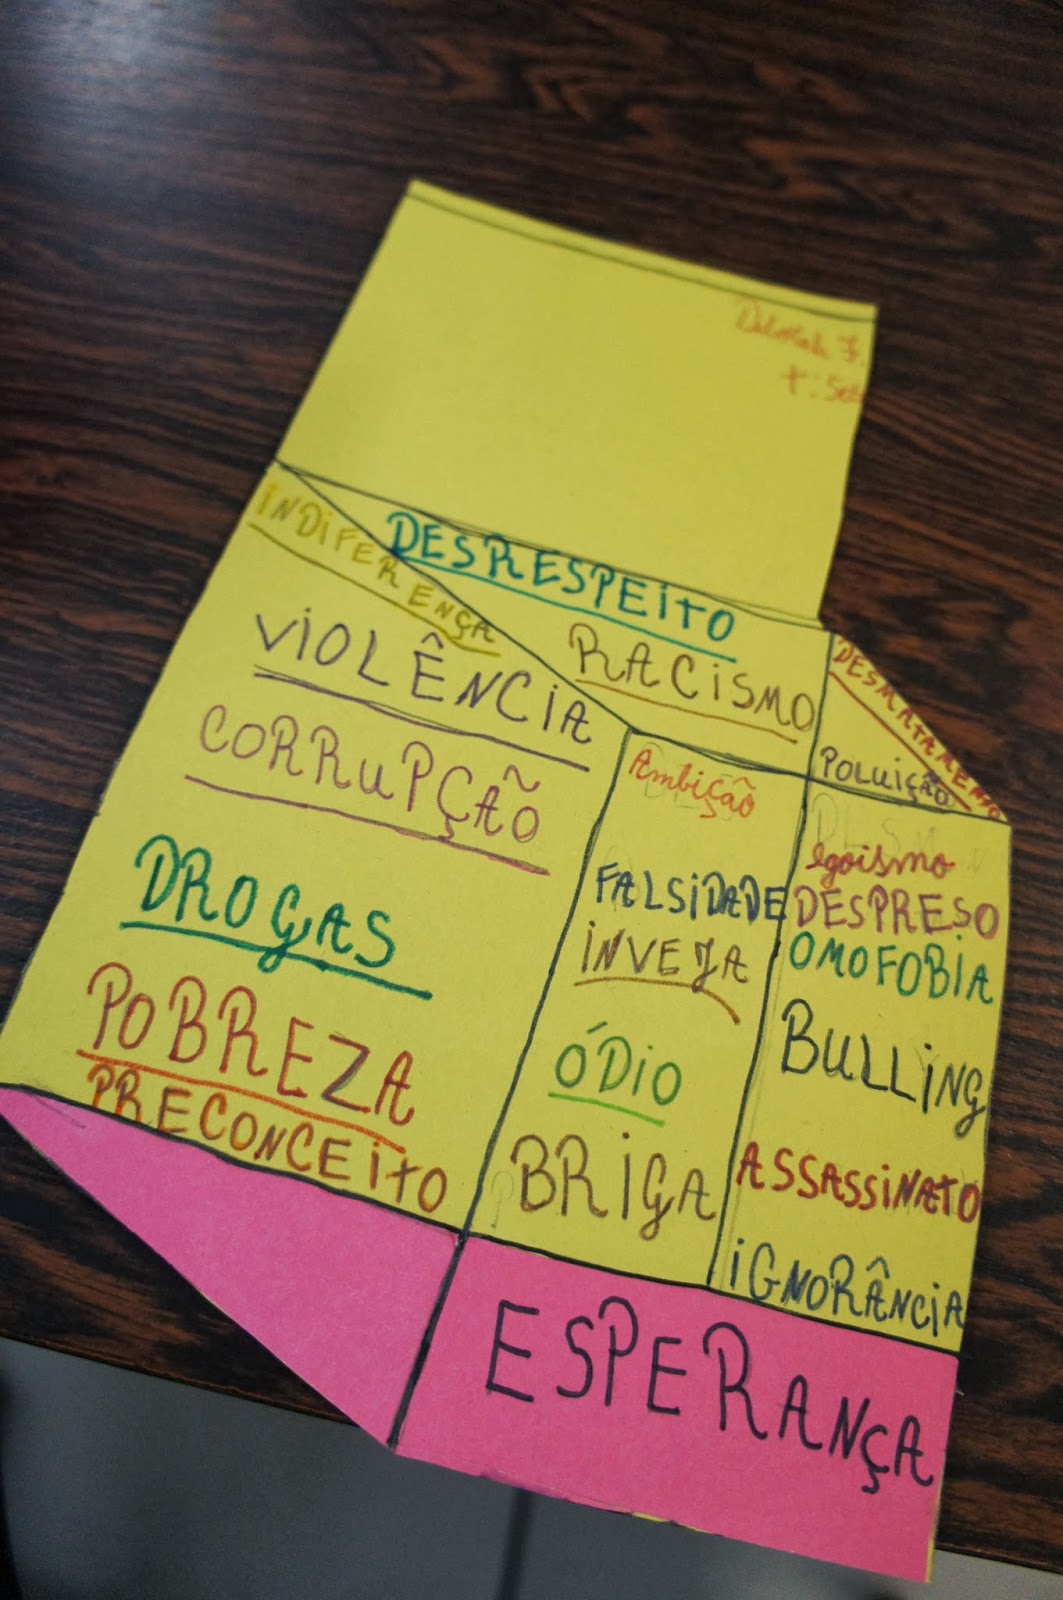 INDIFERENÇA
DESRESPEITO
RACISMO
VIOLÊNCIA
CORRUPÇÃO
DROGAS
POBREZA
PRECONCEITO
Ambição
FALSIDADE
INVEJA
ÓDIO
BRIGA
DESMATAMENTO
POLUIÇÃO
Egoismo
DESPRESO
OMOFOBIA
BULLING
ASSASSINATO
IGNORÂNCIA
ESPERANÇA